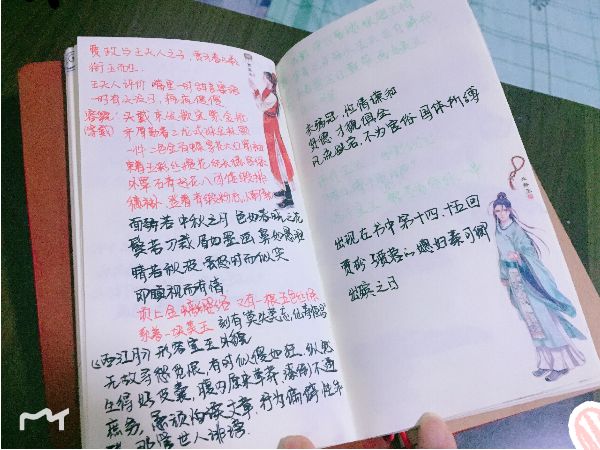 贾政与王夫人之子,贾宝玉
衔玉而生
王夫人评价 嘴里一时甜言蜜语
一时有天没日,疯疯傻傻
容貌: 头戴束发嵌宝紫金冠
穿戴: 齐眉勒着二龙戏珠金抹额
一件二色金百蝶穿花大红箭袖
束着五彩丝攒花结长穗宫绦
外罩石青起花八团倭缎排
穗褂,登着青缎粉底小朝靴
面如若中秋之月 色如春晓之花
鬓若刀裁 眉如墨画 鼻如悬胆
睛若秋波 虽怒时而似笑
即瞋视而有情
项上金螭璎珞 又有一根五色丝绦
系着一块美玉 刻有莫失莫忘,仙寿恒昌
《西江月》
无故寻愁觅恨,有时似傻如狂. 纵然
生得好皮囊,腹内原来草莽 潦倒不通
庶务,愚顽怕读文章. 行为偏僻性乖
张,那管世人诽谤.
未弱冠,性情谦和
贤德 才貌俱全
不为官俗 国体所缚
出现在书中第十四、十五回
贾珍
出殡之日